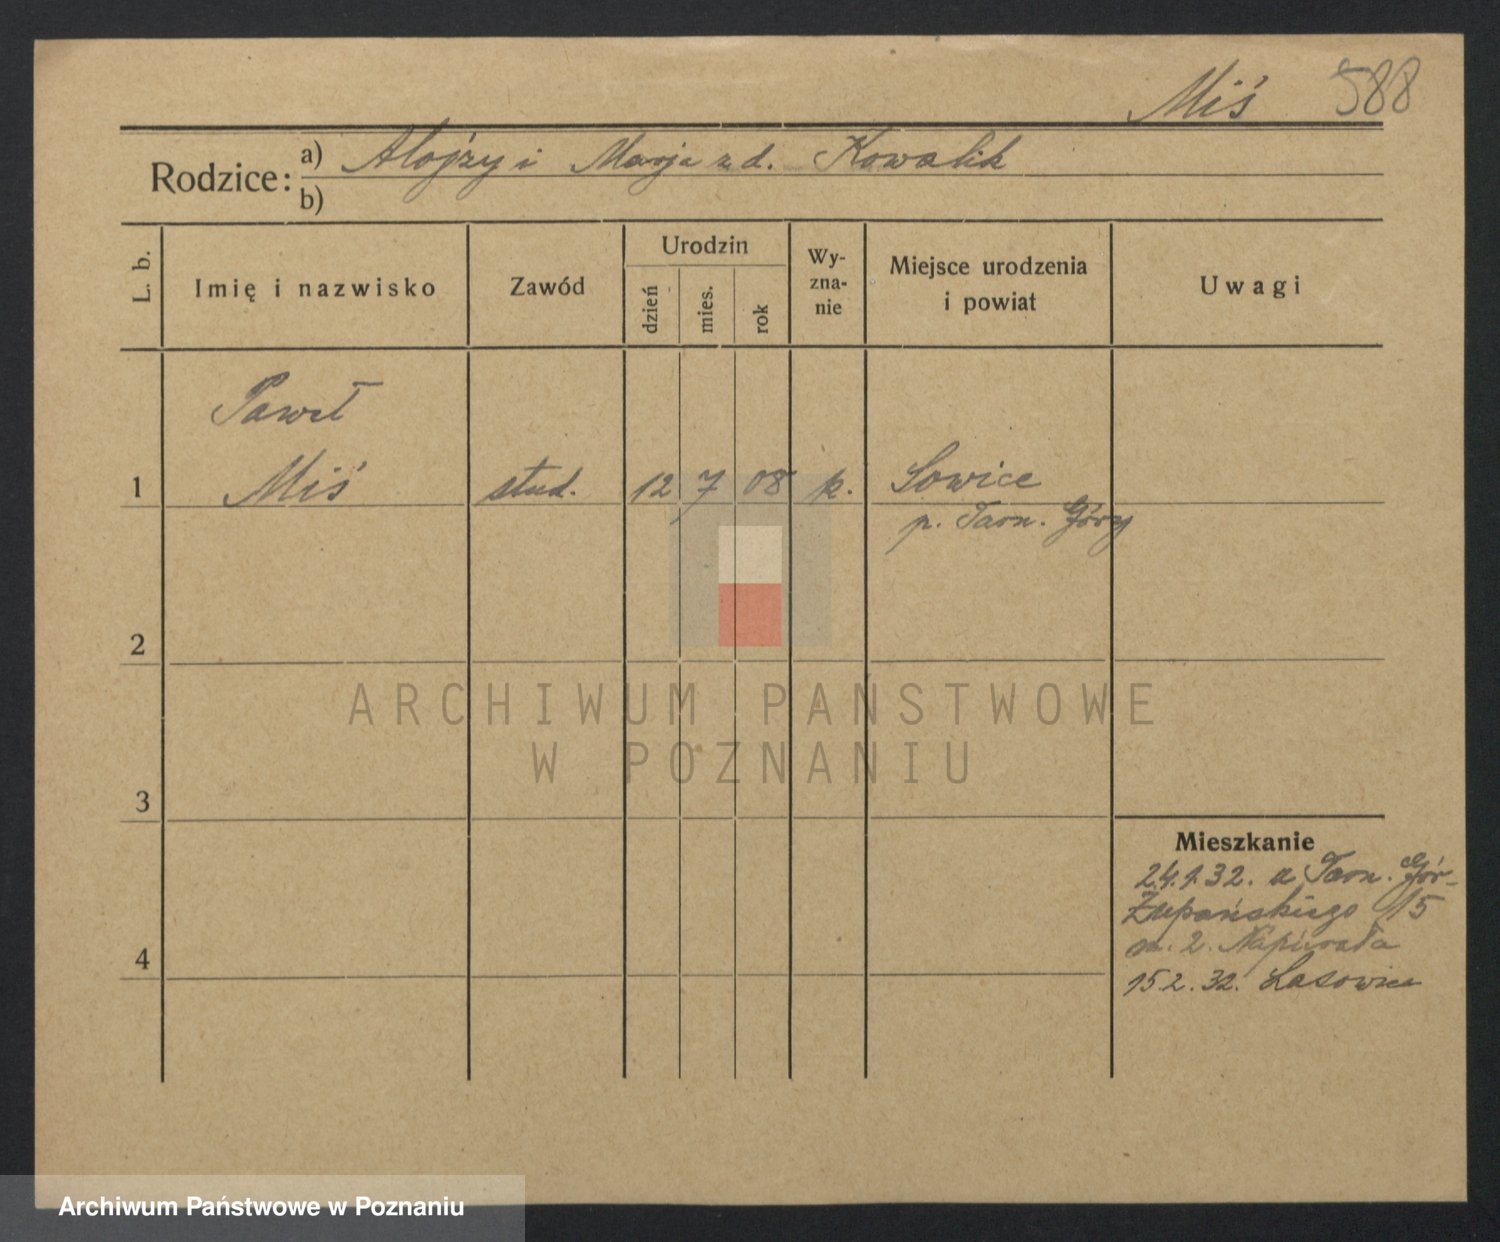 Miś 588
Rodzice: a) Alojzy i Marja z d. Kowalik
b)
L. b. Imię i nazwisko Zawód Urodzin dzień mies. rok Wyznanie Miejsce urodzenia i powiat Uwagi
Paweł
1 Miś stud. 12 7 08 k. Sowice
p. Tarn. Góry
2
ARCHIWUM PAŃSTWOWE
W POZNANIU
3
Mieszkanie
24.1.32. z Tarn. Gór-
Żupańskiego 15
m. 2. Napierała
4
15 2. 32. Lasowice
Archiwum Państwowe w Poznaniu